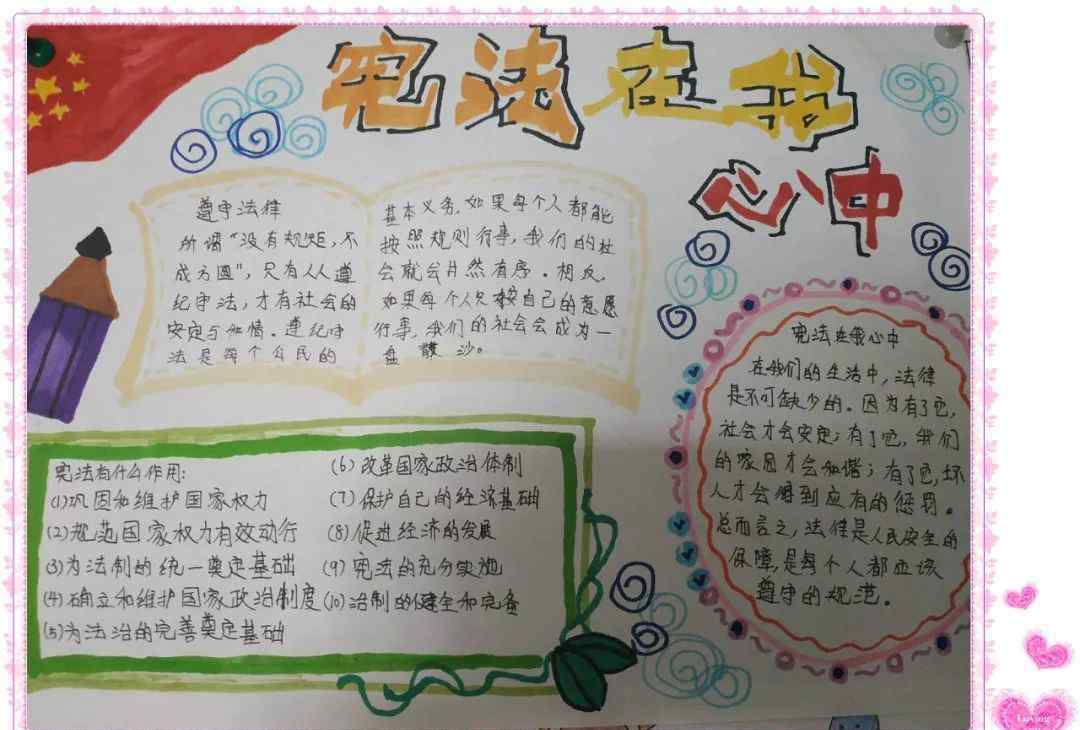 宪法在我
心中
遵守法律
所谓“没有规矩，不
成方圆”，只有人人遵
纪守法，才有社会的
安定与和惰。遵纪守
法是每个公民的
基本义务，如果每个人都能
按照规则行事，我们的社
会就会井然有序。相反，
如果每个人只按自己的意愿
行事，我们的社会会成为一
盘散沙。
宪法有什么作用：
(1)巩固和维护国家权力
(2)规范国家权力有效动行
(3)为法制的统一奠定基础
(4)确立和维护国家政治制度
(5)为法治的完善奠定基础
(6)改革国家政治体制
(7)保护自己的经济基础
(8)促进经济的发展
(9)宪法的充分实施
(10)治制的健全和完备
宪法在我心中
在我们的生活中，法律
是不可缺少的。因为有了它，
社会才会安定；有了它，我们
的家园才会和谐；有了它，坏
人才会得到应有的惩罚。
总而言之，法律是人民安全的
保障，是每个人都应该
遵守的规范。